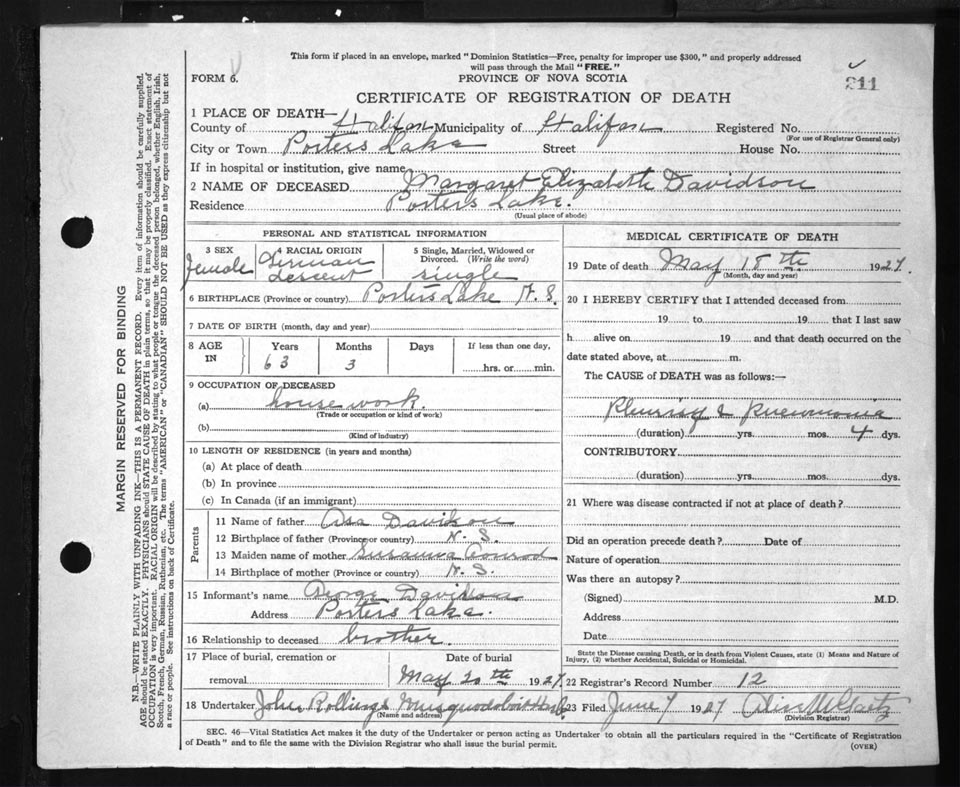 This form if placed in an envelope, marked "Dominion Statistics—Free, penalty for improper use $300," and properly addressed
will pass through the Mail "FREE."
FORM 6.
PROVINCE OF NOVA SCOTIA
211
CERTIFICATE OF REGISTRATION OF DEATH
1 PLACE OF DEATH—
County of Halifax Municipality of Halifax Registered No.
(For use of Registrar General only)
City or Town Porters Lake Street House No.
If in hospital or institution, give name
2 NAME OF DECEASED Margaret Elizabeth Davidson
Residence Porters Lake.
(Usual place of abode)
PERSONAL AND STATISTICAL INFORMATION
3 SEX 4 RACIAL ORIGIN 5 Single, Married, Widowed or
Divorced. (Write the word)
Female German descent single
6 BIRTHPLACE (Province or country) Porters Lake N. S.
7 DATE OF BIRTH (month, day and year)
8 AGE IN Years Months Days If less than one day,
63 3 hrs. or min.
9 OCCUPATION OF DECEASED
(a) house work.
(Trade or occupation or kind of work)
(b)
(Kind of industry)
10 LENGTH OF RESIDENCE (in years and months)
(a) At place of death
(b) In province
(c) In Canada (if an immigrant)
Parents
11 Name of father Asa Davidson
12 Birthplace of father (Province or country) N. S.
13 Maiden name of mother Susanna Conrod
14 Birthplace of mother (Province or country) N. S.
15 Informant's name George Davidson
Address Porters Lake.
16 Relationship to deceased brother.
17 Place of burial, cremation or Date of burial
removal May 20th 1927
18 Undertaker John Rollings Musquodoboit Harb.
(Name and address)
MEDICAL CERTIFICATE OF DEATH
19 Date of death May 18th 1927.
(Month, day and year)
20 I HEREBY CERTIFY that I attended deceased from
19 to 19 that I last saw
h alive on 19 and that death occurred on the
date stated above, at m.
The CAUSE of DEATH was as follows:—
Pleurisy & Pneumonia
(duration) yrs. mos. 4 dys.
CONTRIBUTORY
(duration) yrs. mos. dys.
21 Where was disease contracted if not at place of death?
Did an operation precede death? Date of
Nature of operation
Was there an autopsy?
(Signed) M.D.
Address
Date
State the Disease causing Death, or in death from Violent Causes, state (1) Means and Nature of
Injury, (2) whether Accidental, Suicidal or Homicidal.
22 Registrar's Record Number 12
23 Filed June 7 1927
(Division Registrar)
SEC. 46—Vital Statistics Act makes it the duty of the Undertaker or person acting as Undertaker to obtain all the particulars required in the "Certificate of Registration
of Death" and to file the same with the Division Registrar who shall issue the burial permit.
(OVER)
MARGIN RESERVED FOR BINDING
N.B.—WRITE PLAINLY WITH UNFADING INK—THIS IS A PERMANENT RECORD. Every item of information should be carefully supplied.
AGE should be stated EXACTLY. PHYSICIANS should STATE CAUSE OF DEATH in plain terms, so that it may be properly classified. Exact statement of
OCCUPATION is very important. RACIAL ORIGIN will be described by stating to what people or tongue the deceased person belonged, whether English, Irish,
Scotch, French, German, Russian, Ruthenian, etc. The terms "AMERICAN" or "CANADIAN" SHOULD NOT BE USED as they express citizenship but not
a race or people. See instructions on back of Certificate.